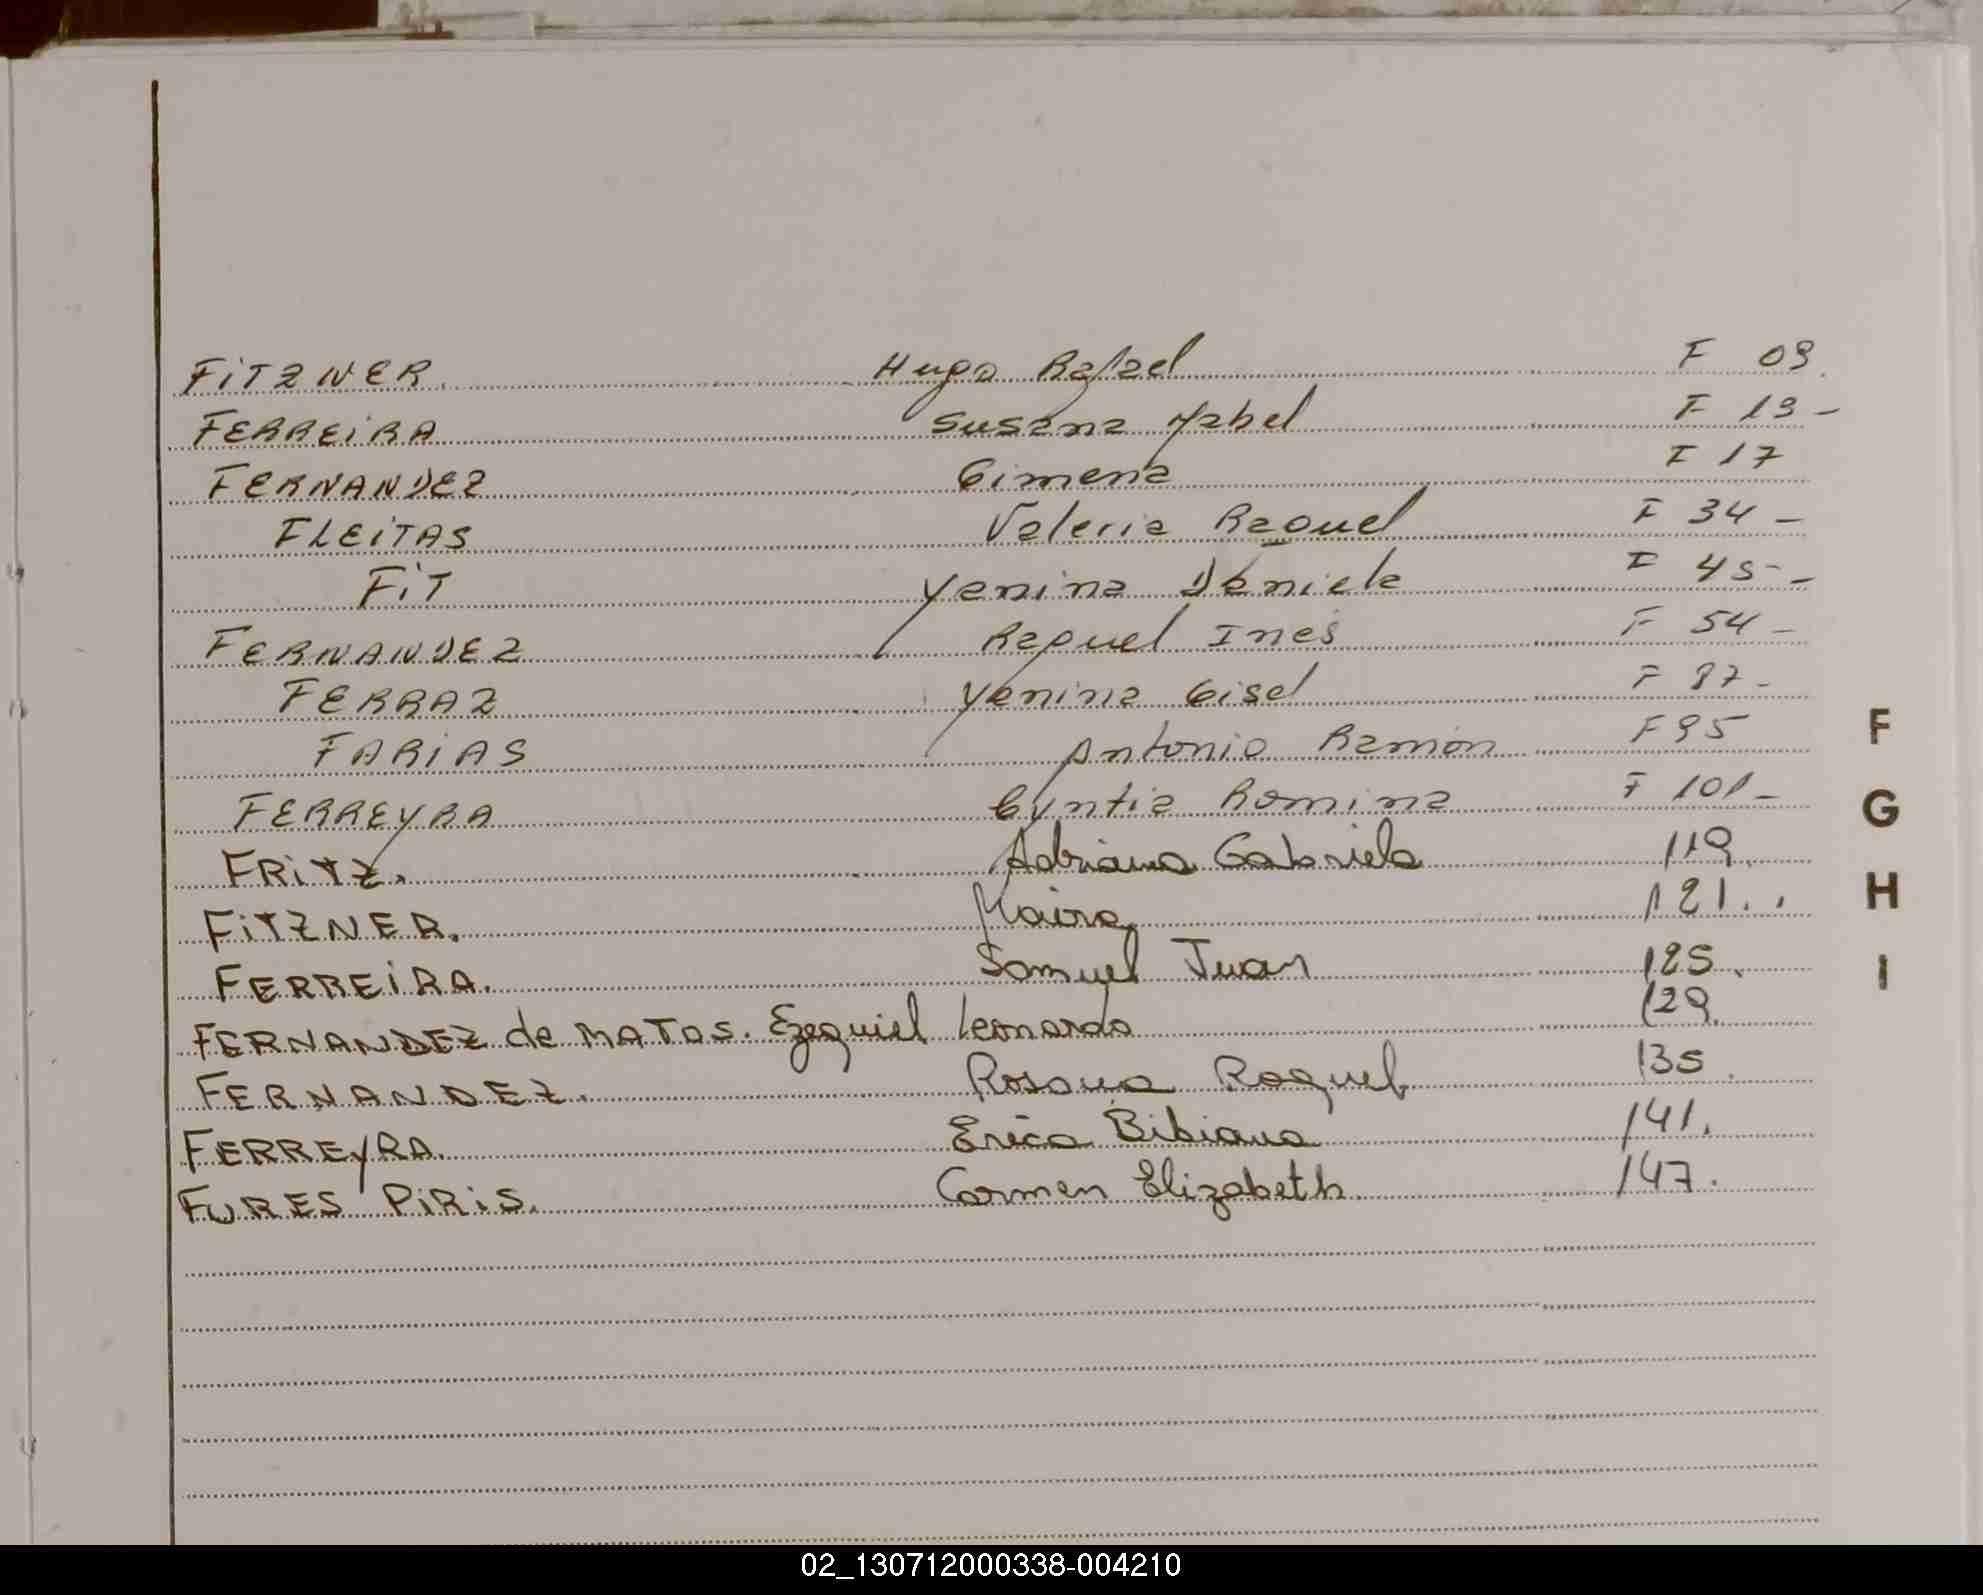 FITZNER. Hugo Rafael F 09.
FERREIRA Susana Mabel F 13 -
FERNANDEZ Gimena F 17
FLEITAS Valeria Raquel F 34 -
FIT Yanina Daniela F 45 -
FERNANDEZ Raquel Inés F 54 -
FERRAZ Yanina Gisel F 87 -
FARIAS Antonio Ramón F 95
FERREYRA Cyntia Romina F 101 -
FRITZ. Adriana Gabriela 119.
FITZNER. Maira 121..
FERREIRA. Samuel Juan 125.
FERNANDEZ de MATOS. Ezequiel Leonardo 129.
FERNANDEZ. Rosana Raquel 135.
FERREYRA. Erica Bibiana 141.
FURES PIRIS. Carmen Elizabeth 147.
F
G
H
I
02_130712000338-004210